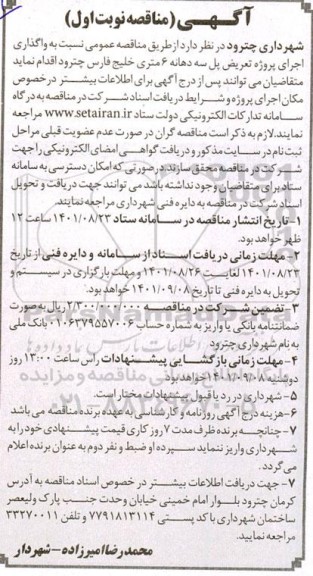 آگهـی (مناقصه نوبت اول)
شهرداری چترود در نظر دارد از طریق مناقصه عمومی نسبت به واگذاری
اجرای پروژه تعریض پل سه دهانه ۶ متری خلیج فارس چترود اقدام نماید
متقاضیان می توانند پس از درج آگهی برای اطلاعات بیشتر در خصوص
مکان اجرای پروژه و شرایط دریافت اسناد شرکت در مناقصه به درگاه
سامانه تدارکات الکترونیکی دولت ستاد www.setairan.ir مراجعه
نمایند. لازم به ذکر است مناقصه گران در صورت عدم عضویت قبلی مراحل
ثبت نام در سایت مذکور و دریافت گواهی امضای الکترونیکی را جهت
شرکت در مناقصه محقق سازند. در صورتی که امکان دسترسی به سامانه
ستاد برای متقاضیان وجود نداشته باشد می توانند جهت دریافت و تحویل
اسناد شرکت در مناقصه به دایره فنی شهرداری مراجعه نمایند.
۱- تاریخ انتشار مناقصه در سامانه ستاد ۱۴۰۱/۰۸/۲۳ ساعت ۱۲
ظهر خواهد بود.
۲- مهلت زمانی دریافت اسناد از سامانه و دایره فنی از تاریخ
۱۴۰۱/۰۸/۲۳ لغایت ۱۴۰۱/۰۸/۲۶ و مهلت بارگزاری در سیستم و
تحویل به دایره فنی تا تاریخ ۱۴۰۱/۰۹/۰۸ خواهد بود.
۳- تضمین شرکت در مناقصه ۲/۳۰۰/۰۰۰/۰۰۰ ریال به صورت
ضمانتنامه بانکی یا واریز به شماره حساب ۰۱۰۶۳۷۹۵۵۷۰۰۶ بانک ملی
به نام شهرداری چترود
۴- مهلت زمانی بازگشایی پیشنهادات راس ساعت ۱۳:۰۰ روز
دوشنبه ۱۴۰۱/۰۹/۰۸ خواهد بود
۵- شهرداری در رد یا قبول پیشنهادات مختار است.
۶- هزینه درج آگهی روزنامه و کارشناسی به عهده برنده مناقصه می باشد
۷- چنانچه برنده ظرف مدت ۷ روز کاری قیمت پیشنهادی خود را به
شهرداری واریز ننماید سپرده او ضبط و نفر دوم به عنوان برنده اعلام
می گردد.
۷- جهت دریافت اطلاعات بیشتر در خصوص اسناد مناقصه به آدرس
کرمان چترود بلوار امام خمینی خیابان وحدت جنب پارک ولیعصر
ساختمان شهرداری با کد پستی ۷۷۹۱۸۱۳۱۱۴ و تلفن ۳۳۲۷۰۰۱۱
مراجعه نمایید.
محمدرضا امیرزاده - شهردار